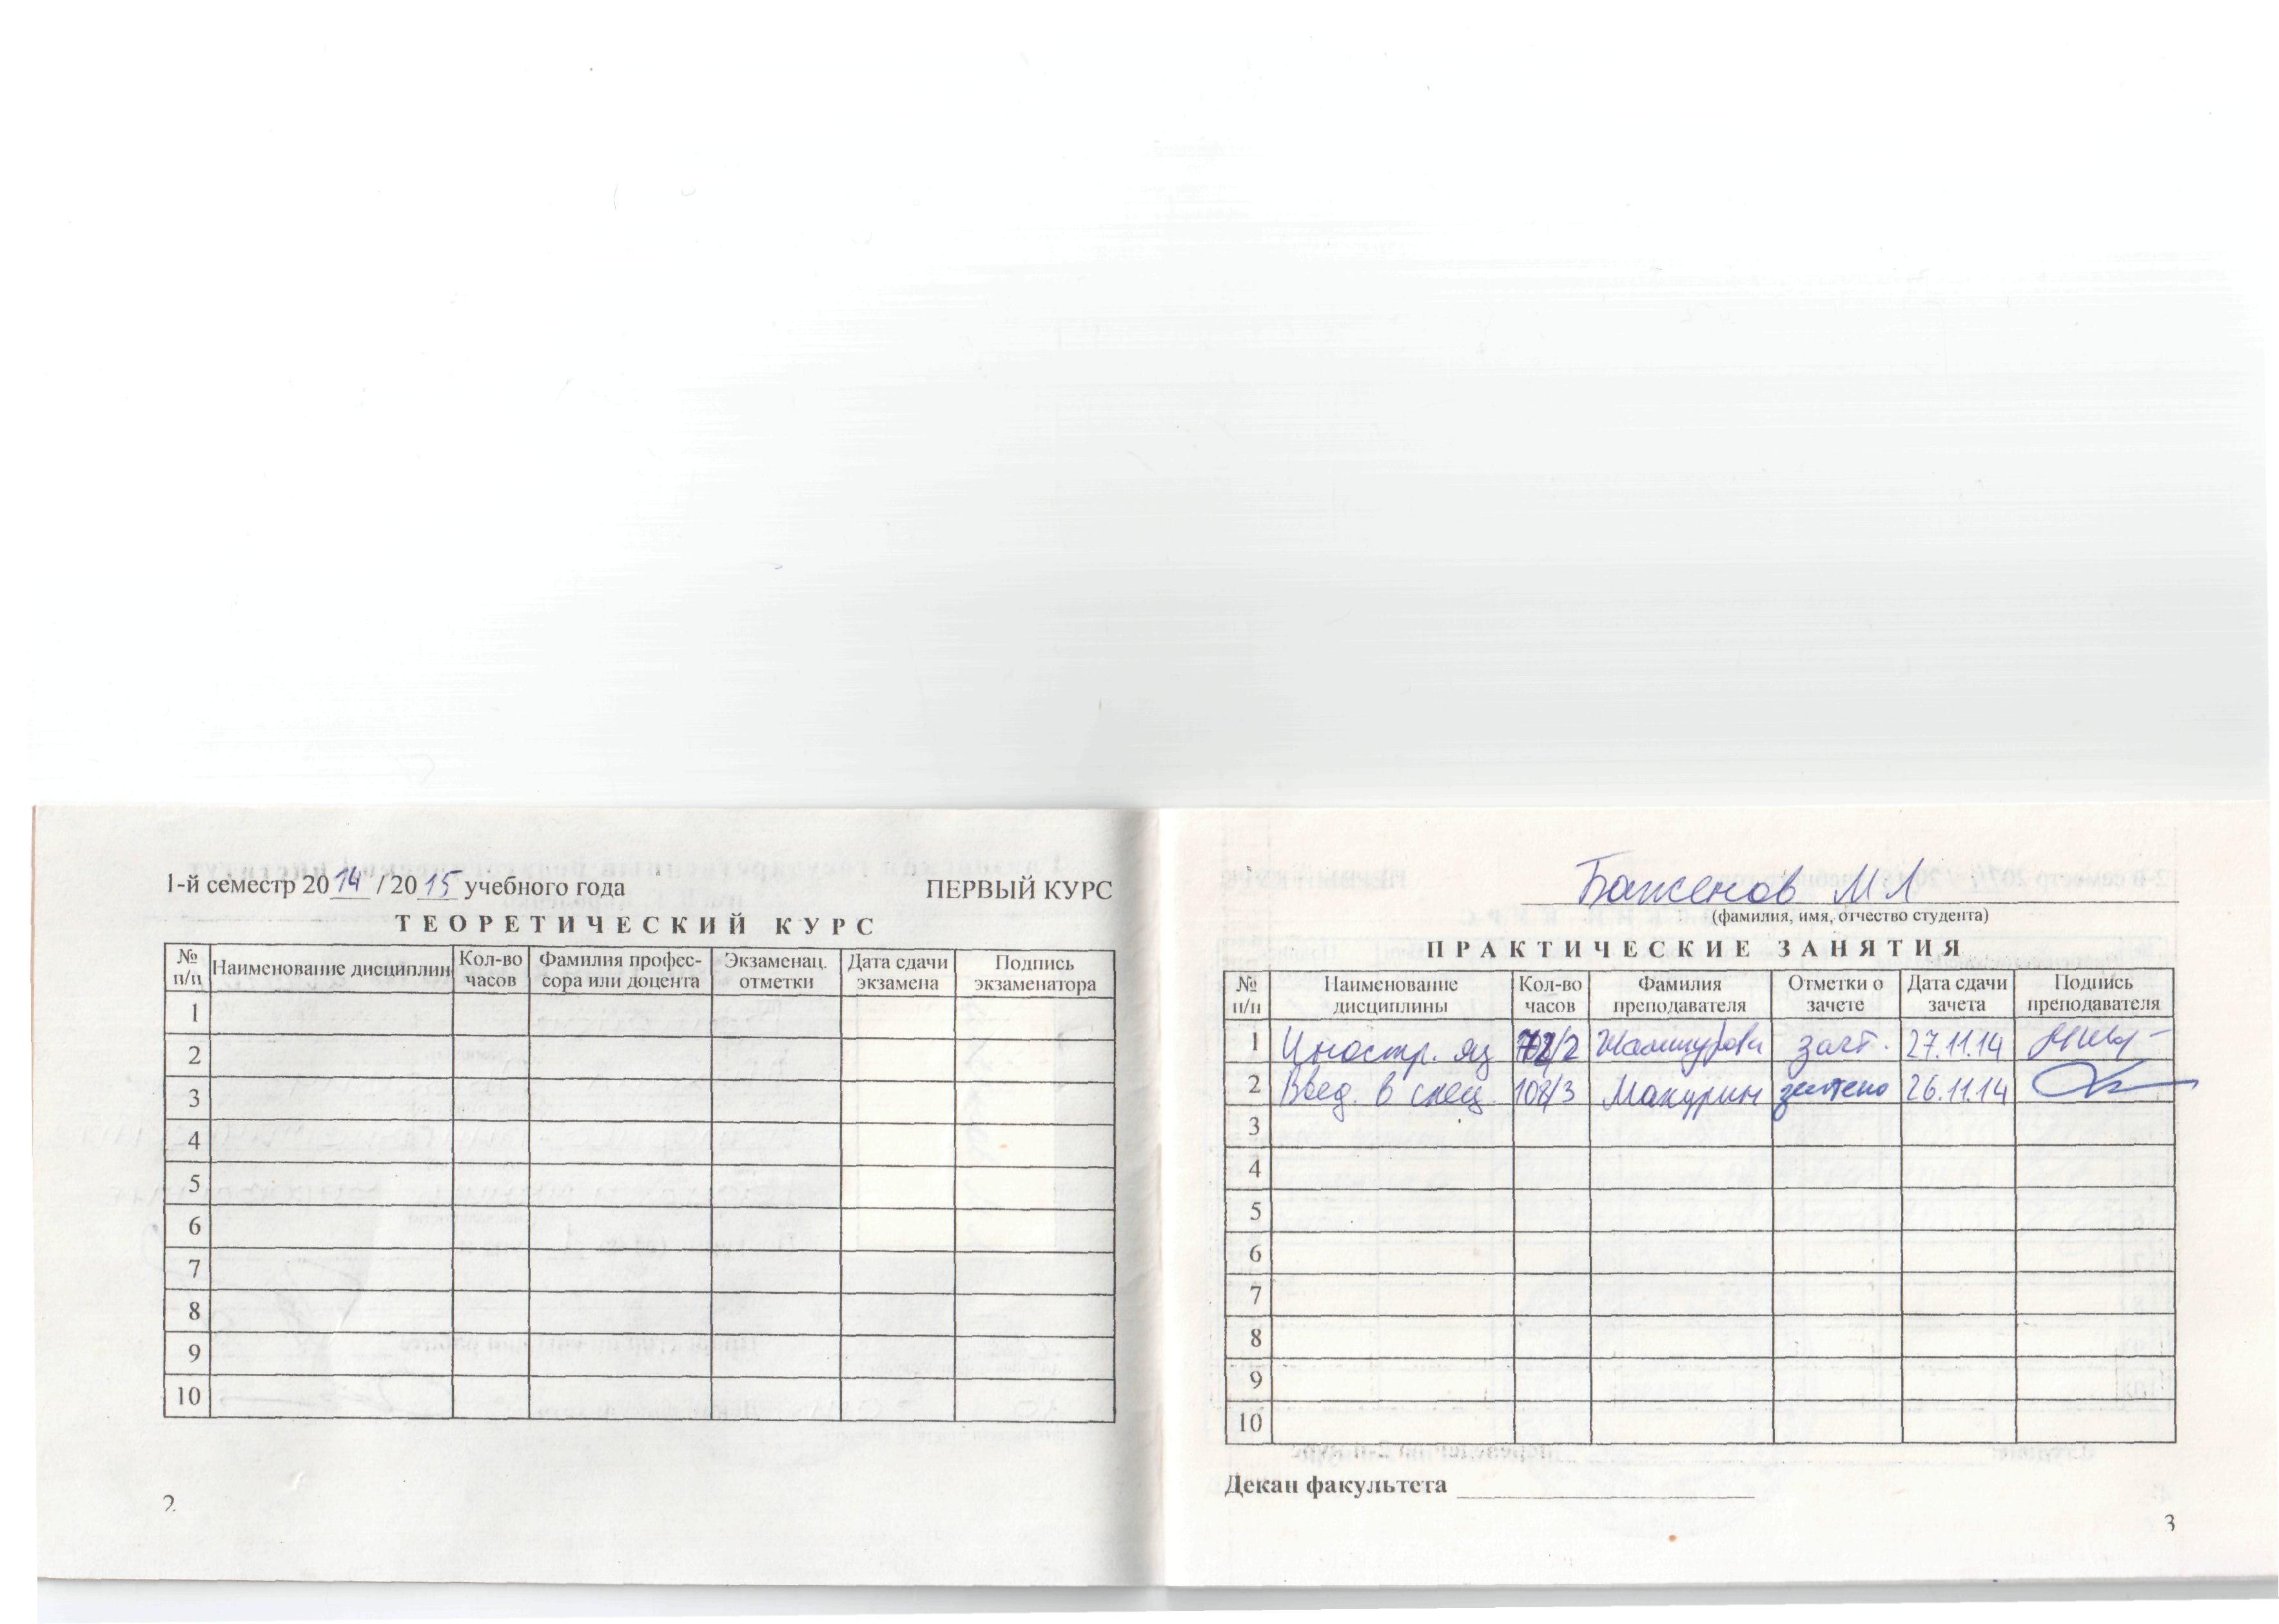 1-й семестр 2014 / 2015 учебного года ПЕРВЫЙ КУРС
ТЕОРЕТИЧЕСКИЙ КУРС
№ п/п Наименование дисциплин Кол-во часов Фамилия профес-сора или доцента Экзаменац. отметки Дата сдачи экзамена Подпись экзаменатора
1
2
3
4
5
6
7
8
9
10
2
Баженов М Л
(фамилия, имя, отчество студента)
ПРАКТИЧЕСКИЕ ЗАНЯТИЯ
№ п/п Наименование дисциплины Кол-во часов Фамилия преподавателя Отметки о зачете Дата сдачи зачета Подпись преподавателя
1 Иностр. яз 72/2 зачт. 27.11.14
2 Введ. в спец. 108/3 Макурин зачтено 26.11.14
3
4
5
6
7
8
9
10
Декан факультета
3